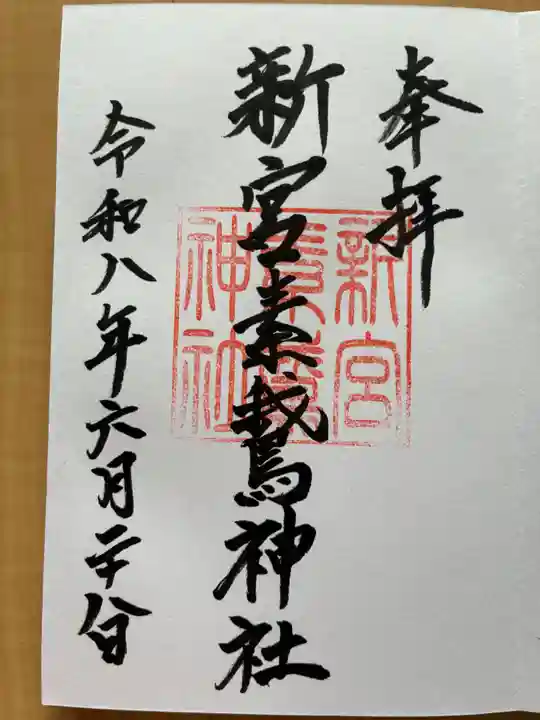 奉拝
新宮素鵞神社
令和八年六月二十八日
新宮
素鵞
神社